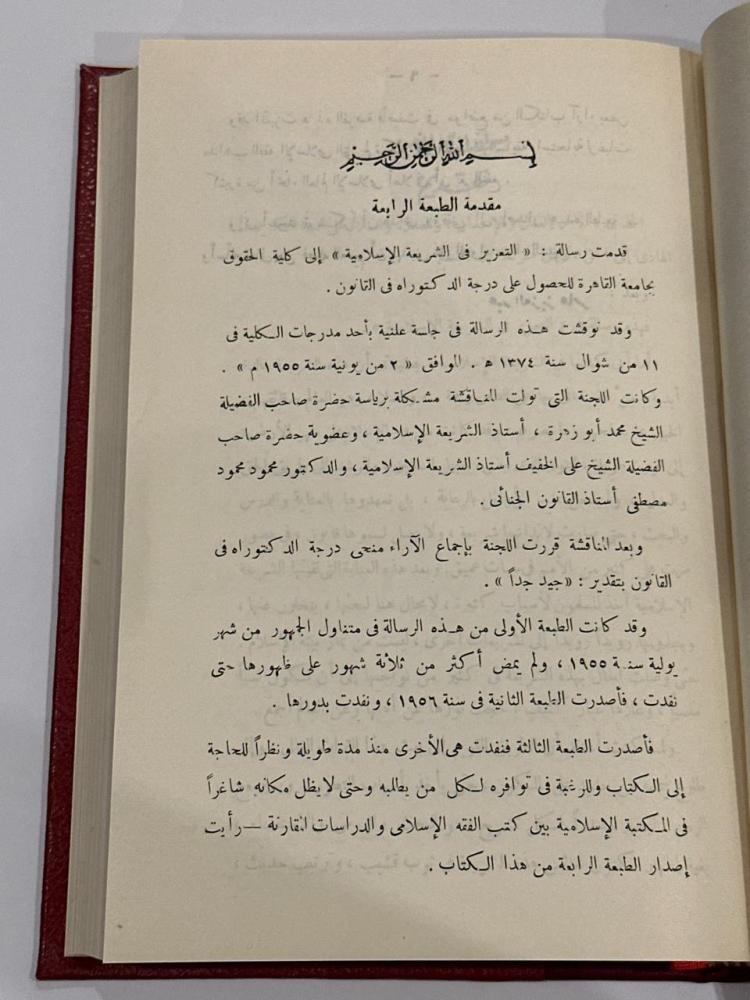 بسم الله الرحمن الرحيم
مقدمة الطبعة الرابعة
قدمت رسالة : « التعزير فى الشريعة الإسلامية » إلى كلية الحقوق
بجامعة القاهرة للحصول على درجة الدكتوراه فى القانون .
وقد نوقشت هذه الرسالة فى جلسة علنية بأحد مدرجات الكلية فى
١١ من شوال سنة ١٣٧٤ ه . الموافق « ٢ من يونية سنة ١٩٥٥ م » .
وكانت اللجنة التى تولت المناقشة مشكلة برياسة حضرة صاحب الفضيلة
الشيخ محمد أبو زهرة ، أستاذ الشريعة الإسلامية ، وعضوية حضرة صاحب
الفضيلة الشيخ على الخفيف أستاذ الشريعة الإسلامية ، والدكتور محمود محمود
مصطفى أستاذ القانون الجنائى .
وبعد المناقشة قررت اللجنة بإجماع الآراء منحى درجة الدكتوراه فى
القانون بتقدير : «جيد جداً » .
وقد كانت الطبعة الأولى من هذه الرسالة فى متناول الجمهور من شهر
يولية سنة ١٩٥٥ ، ولم يمض أكثر من ثلاثة شهور على ظهورها حتى
نفدت ، فأصدرت الطبعة الثانية فى سنة ١٩٥٦ ، ونفدت بدورها .
فأصدرت الطبعة الثالثة فنفدت هى الأخرى منذ مدة طويلة ونظراً للحاجة
إلى الكتاب وللرغبة فى توافره لكل من يطلبه وحتى لا يظل مكانه شاغراً
فى المكتبة الإسلامية بين كتب الفقه الإسلامى والدراسات المقارنة — رأيت
إصدار الطبعة الرابعة من هذا الكتاب .